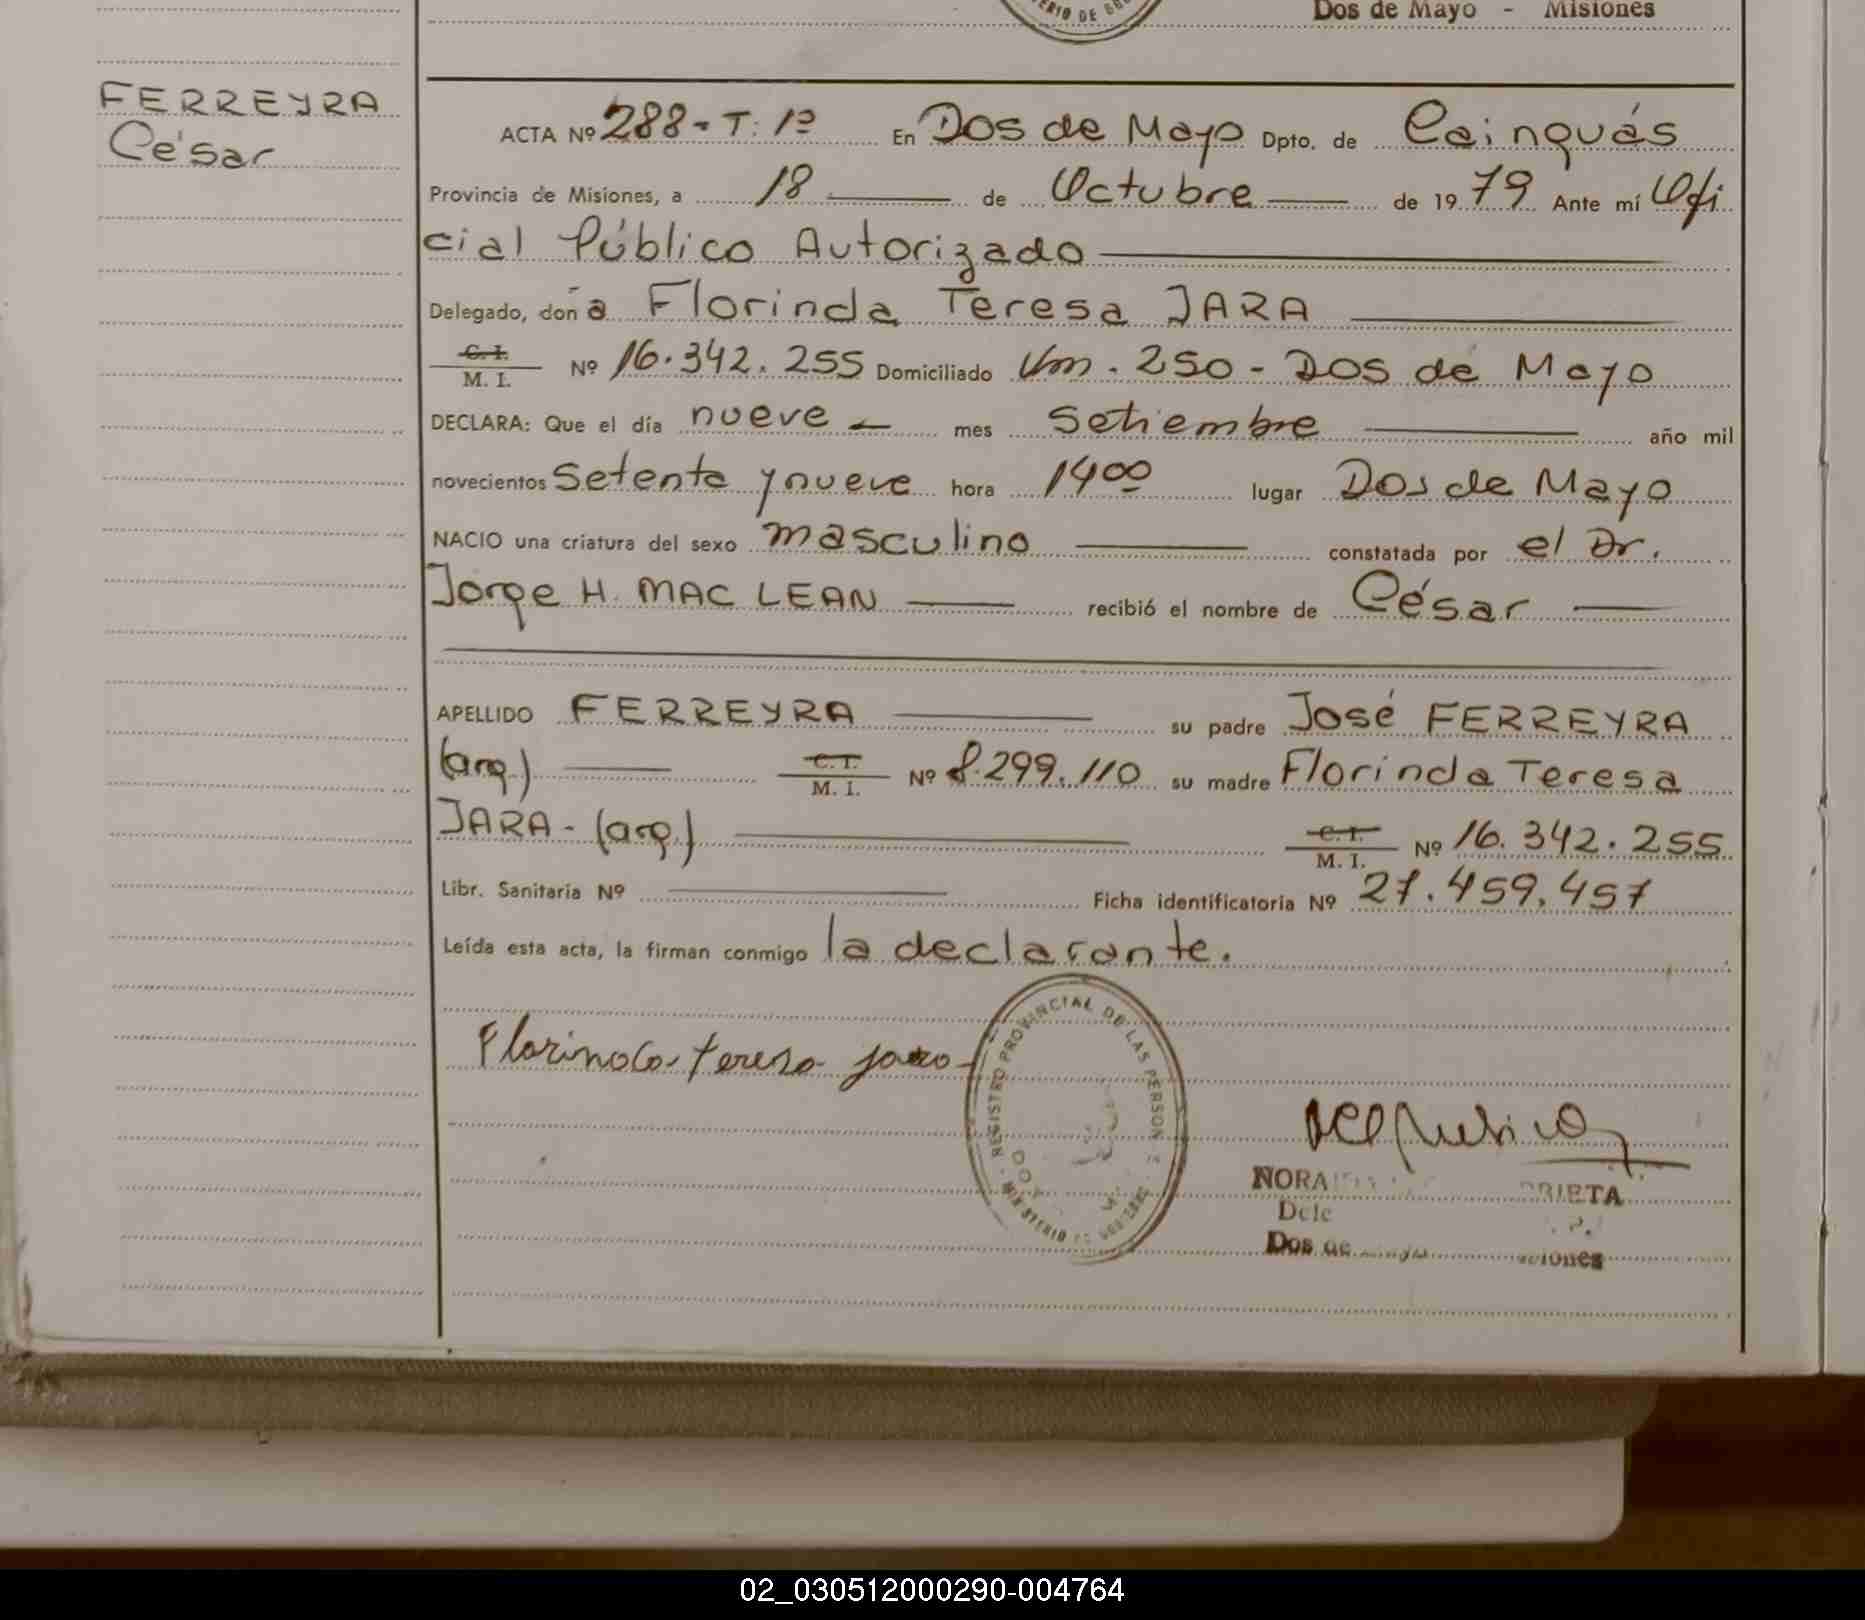 Dos de Mayo - Misiones
FERREYRA
César
ACTA Nº 288- T: 1º En Dos de Mayo Dpto. de Cainguás
Provincia de Misiones, a 18 de Octubre de 1979 Ante mí Ofi
cial Público Autorizado
Delegado, doña Florinda Teresa JARA
C. I.
M. I. Nº 16.342.255 Domiciliado Km. 250 - Dos de Mayo
DECLARA: Que el día nueve mes Setiembre año mil
novecientos Setenta y nueve hora 14 00 lugar Dos de Mayo
NACIO una criatura del sexo masculino constatada por el Dr.
Jorge H. MAC LEAN recibió el nombre de César
APELLIDO FERREYRA su padre José FERREYRA
(arg.) C. I.
M. I. Nº 8.299.110 su madre Florinda Teresa
JARA - (arg.) C. I.
M. I. Nº 16.342.255
Libr. Sanitaria Nº Ficha identificatoria Nº 27.459.457
Leída esta acta, la firman conmigo la declarante.
REGISTRO PROVINCIAL DE LAS PERSON
MINISTERIO DE GOBIERNO
Florinda teresa jara
NORA
Dos de
02_030512000290-004764